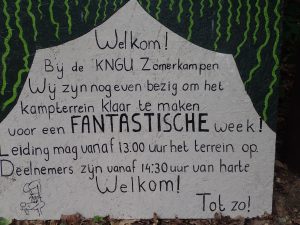 Welkom!
Bij de KNGU Zomerkampen
Wij zijn nog even bezig om het
kampterrein klaar te maken
voor een FANTASTISCHE week!
Leiding mag vanaf 13.00 uur het terrein op.
Deelnemers zijn vanaf 14:30 uur van harte
Welkom!
Tot zo!